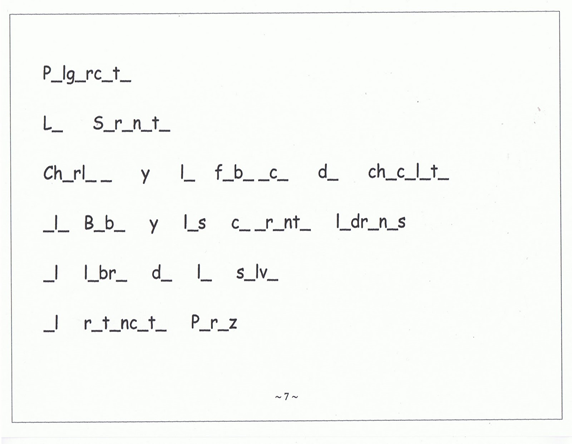 P_lg_rc_t_
L_ S_r_n_t_
Ch_rl_ _ y l_ f_b_ _c_ d_ ch_c_l_t_
_l_ B_b_ y l_s c_ _r_nt_ l_dr_n_s
_l l_br_ d_ l_ s_lv_
_l r_t_nc_t_ P_r_z
~ 7 ~